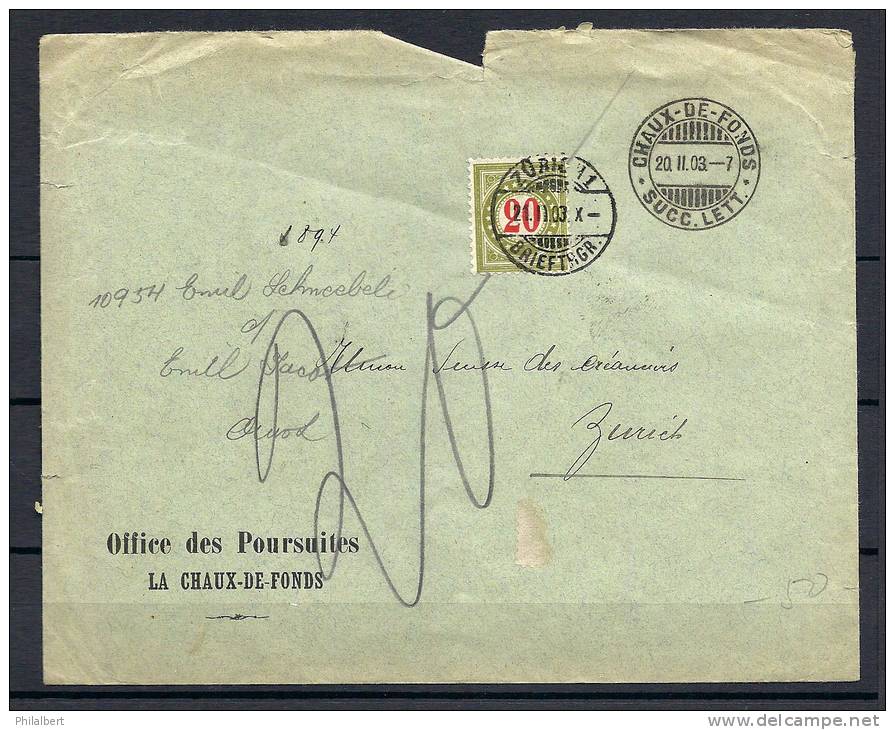 CHAUX-DE-FONDS
20. II. 03.–7
SUCC. LETT.
ZÜRICH 1
21. II 03. X–
BRIEFTRGR.
20
1894
10954 Emil Schneebeli
c/
Emil Jacot
Union Suisse des créanciers
Zurich
20
Office des Poursuites
LA CHAUX-DE-FONDS
– 50
Philalbert
www.delcampe.net